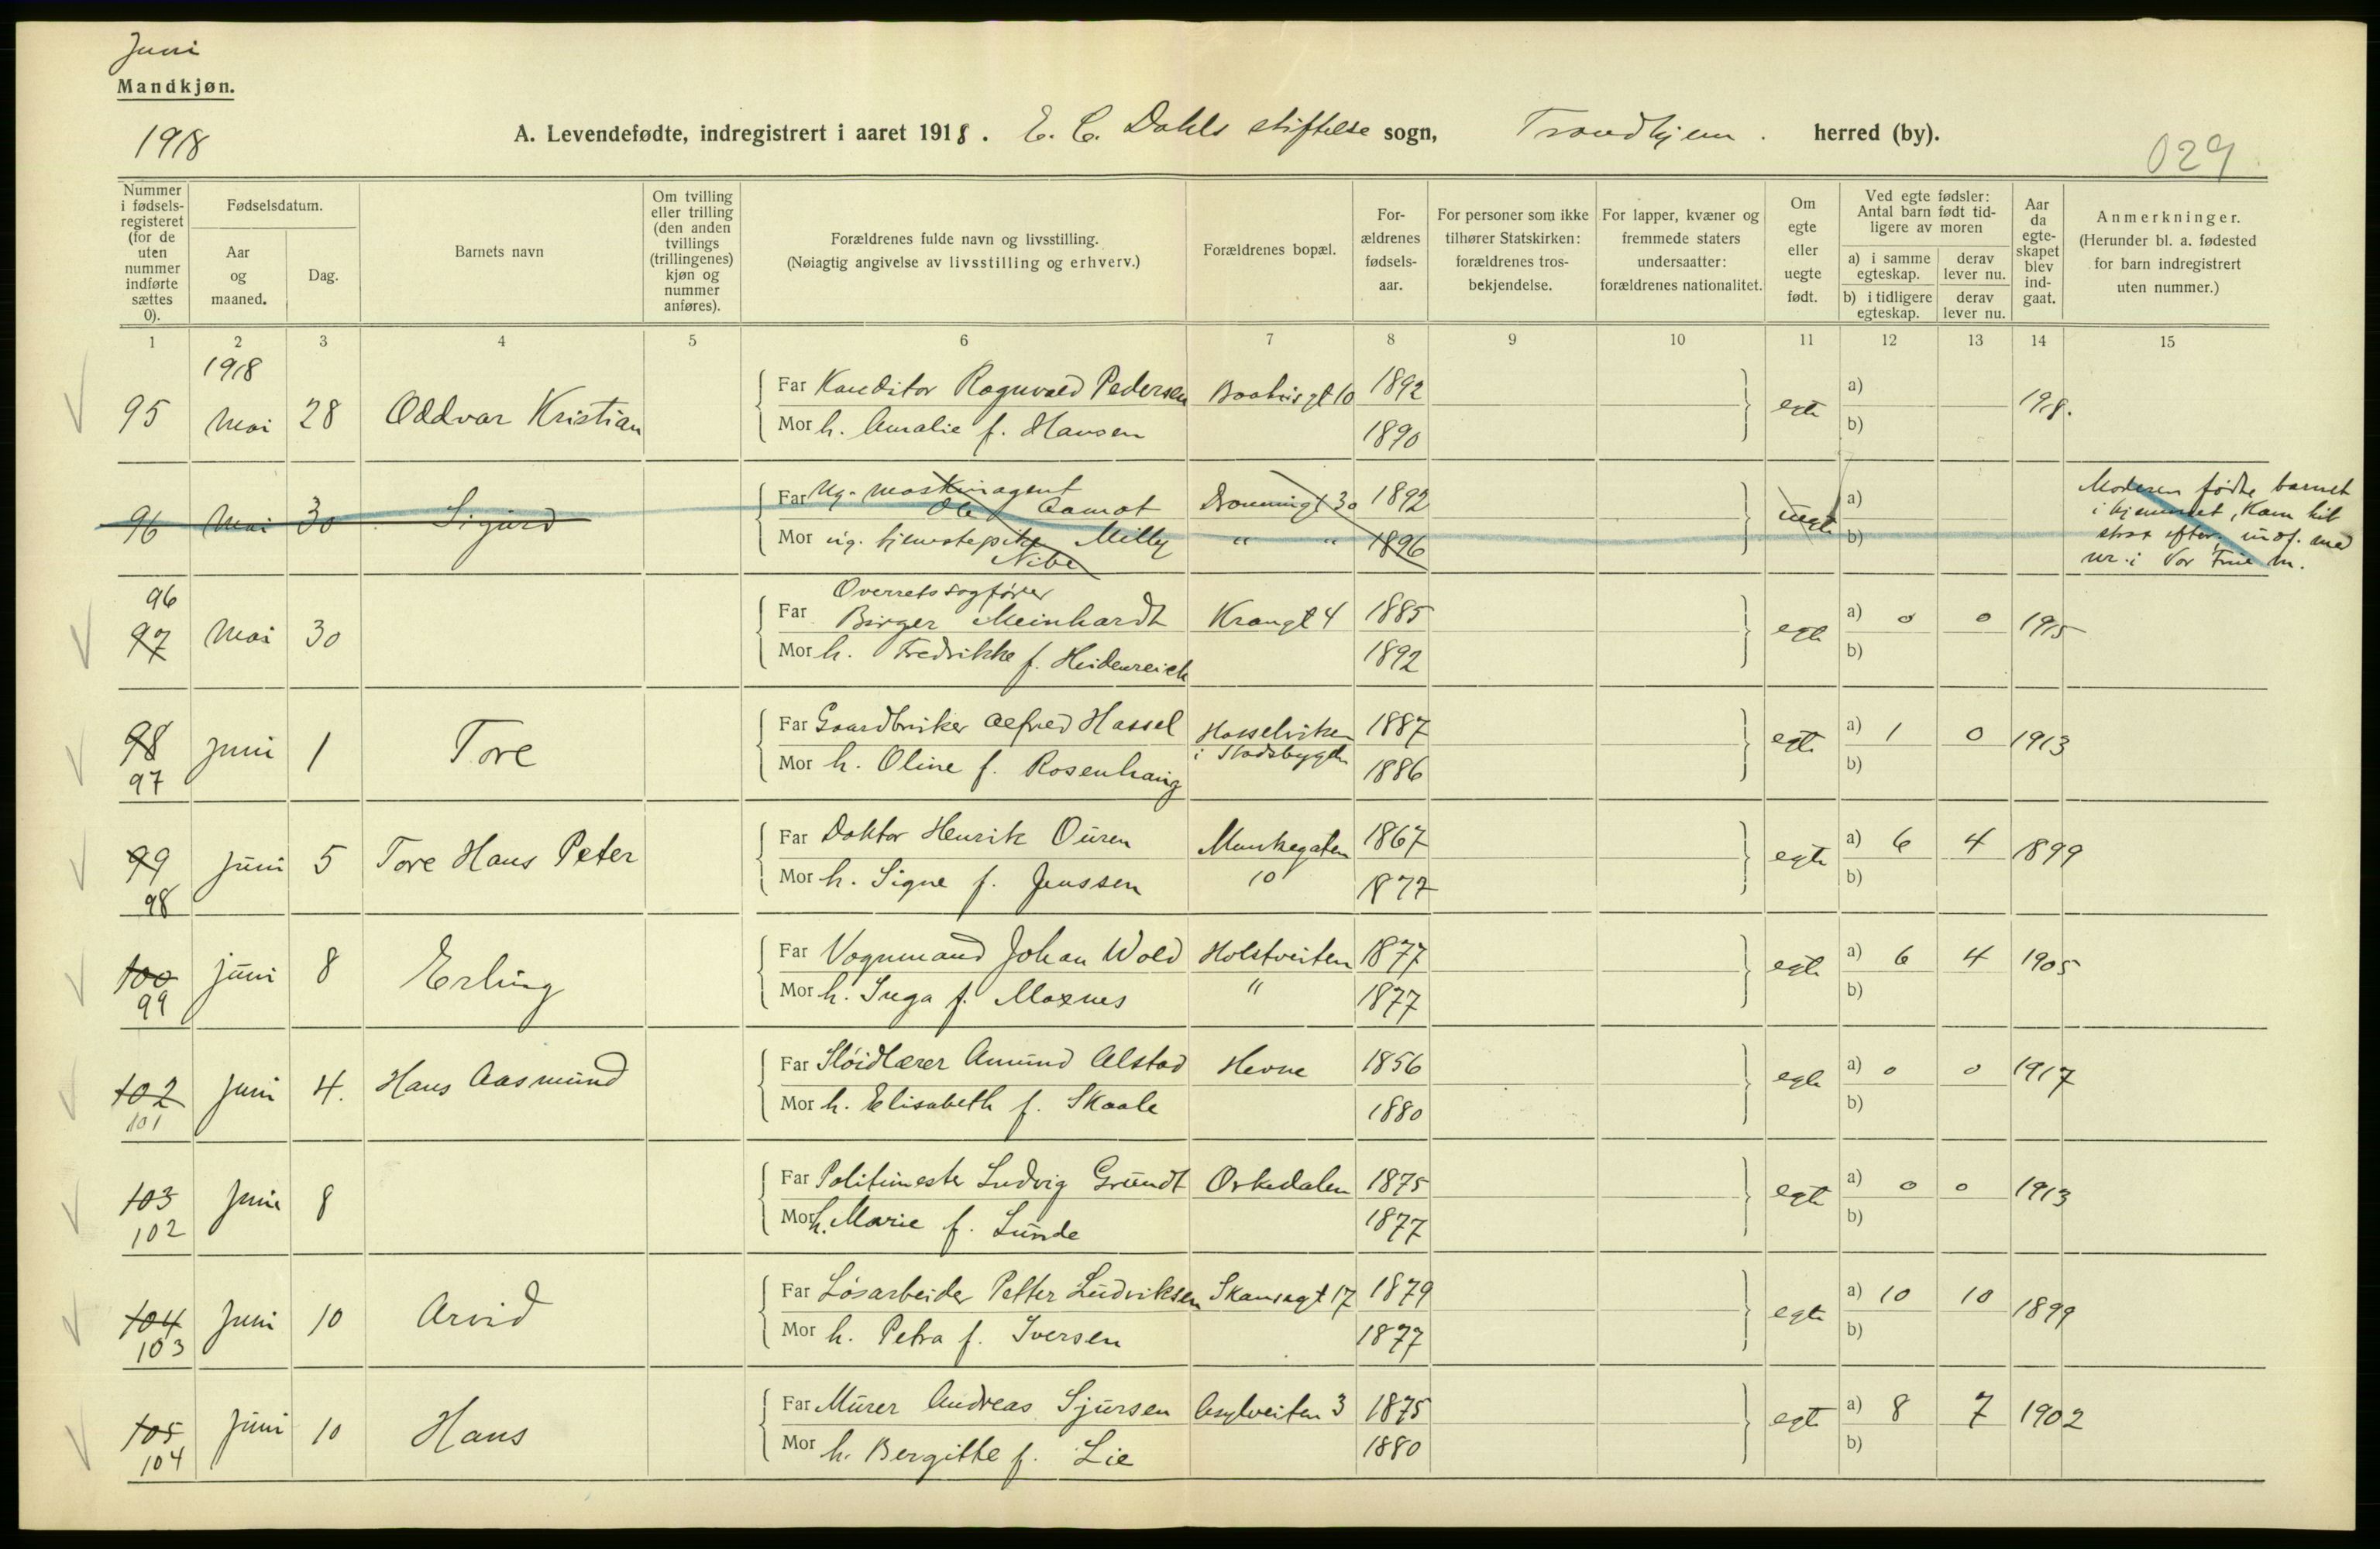 Juni
Mandkjøn.
1918
A. Levendefødte, indregistrert i aaret 1918. E. C. Dahls stiftelse sogn, Trondhjem. herred (by).
029
Nummer i fødsels-registeret (for de uten nummer indførte sættes 0).
Fødselsdatum.
Aar og maaned.
Dag.
Barnets navn
Om tvilling eller trilling (den anden tvillings (trillingenes) kjøn og nummer anføres).
Forældrenes fulde navn og livsstilling.
(Nøiagtig angivelse av livsstilling og erhverv.)
Forældrenes bopæl.
For-ældrenes fødsels-aar.
For personer som ikke tilhører Statskirken: forældrenes tros-bekjendelse.
For lapper, kvæner og fremmede staters undersaatter: forældrenes nationalitet.
Om egte eller uegte født.
Ved egte fødsler: Antal barn født tid-ligere av moren
a) i samme egteskap.
derav lever nu.
b) i tidligere egteskap.
derav lever nu.
Aar da egte-skapet blev ind-gaat.
Anmerkninger.
(Herunder bl. a. fødested for barn indregistrert uten nummer.)
1 2 3 4 5 6 7 8 9 10 11 12 13 14 15
1918
95 Mai 28 Oddvar Kristian Far Konditor Ragnvald Pedersen 1892 egte a) 1918.
Mor h. Amalie f. Hansen 1890 b)
96 Mai 30 Sigurd Far Ug. maskinagent Ole Aamot Dronningt 30 1892 uegte a)
Mor ug. tjenestepike Milly Nibe " " 1896 b)
Moderen fødte barnet
i hjemmet, kam hit
strax efter, indf. med
nr. i Vor Frue m.
96
97 Mai 30 Far Overretssagfører Birger Meinhardt Krangt 4 1885 egte a) 0 0 1915
Mor h. Fredrikke f. Heidenreich 1892 b)
98 Juni 1 Tore Far Gaardbruker Alfred Hassel Hasselviken 1887 egte a) 1 0 1913
97 Mor h. Oline f. Rosenhaug i Stadsbygden 1886 b)
99 Juni 5 Tore Hans Peter Far Doktor Henrik Ouren Munkegaten 1867 egte a) 6 4 1899
98 Mor h. Signe f. Jenssen 10 1877 b)
100 Juni 8 Erling Far Vognmand Johan Wold Holstveiten 1877 egte a) 6 4 1905
99 Mor h. Inga f. Moxnes " 1877 b)
102 Juni 4. Hans Aasmund Far Sløidlærer Amund Alstad Hevne 1856 egte a) 0 0 1917
101 Mor h. Elisabeth f. Skaale 1880 b)
103 Juni 8 Far Politimester Ludvig Grundt Orkedalen 1875 egte a) 0 0 1913
102 Mor h. Marie f. Lunde 1877 b)
104 Juni 10 Arvid Far Løsarbeider Petter Ludviksen Skansegt 17 1879 egte a) 10 10 1899
103 Mor h. Petra f. Iversen 1877 b)
105 Juni 10 Hans Far Murer Andreas Sjursen Asylveiten 3 1875 egte a) 8 7 1902
104 Mor h. Bergitte f. Lie 1880 b)